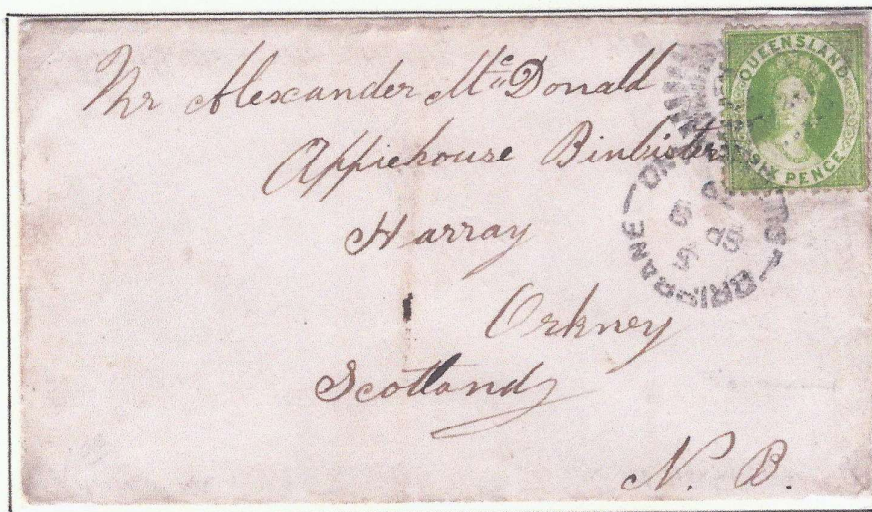 Mr Alexander McDonald
Appiehouse Binbister
Harray
Orkney
Scotland
N. B.
QUEENSLAND
SIX PENCE
BRISBANE